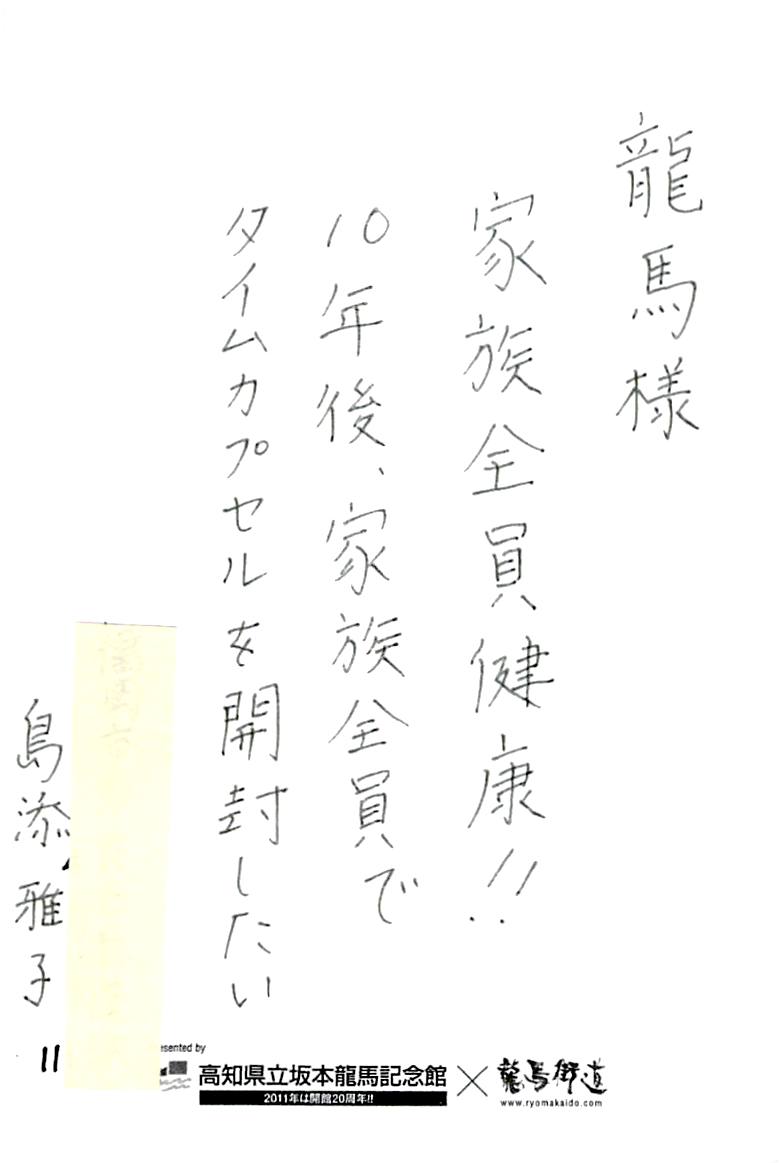 龍馬様
家族全員健康!!
10年後、家族全員で
タイムカプセルを開封したい
島添雅子
11
esented by
高知県立坂本龍馬記念館×龍馬街道
2011年は開館20周年!!
www.ryomakaido.com